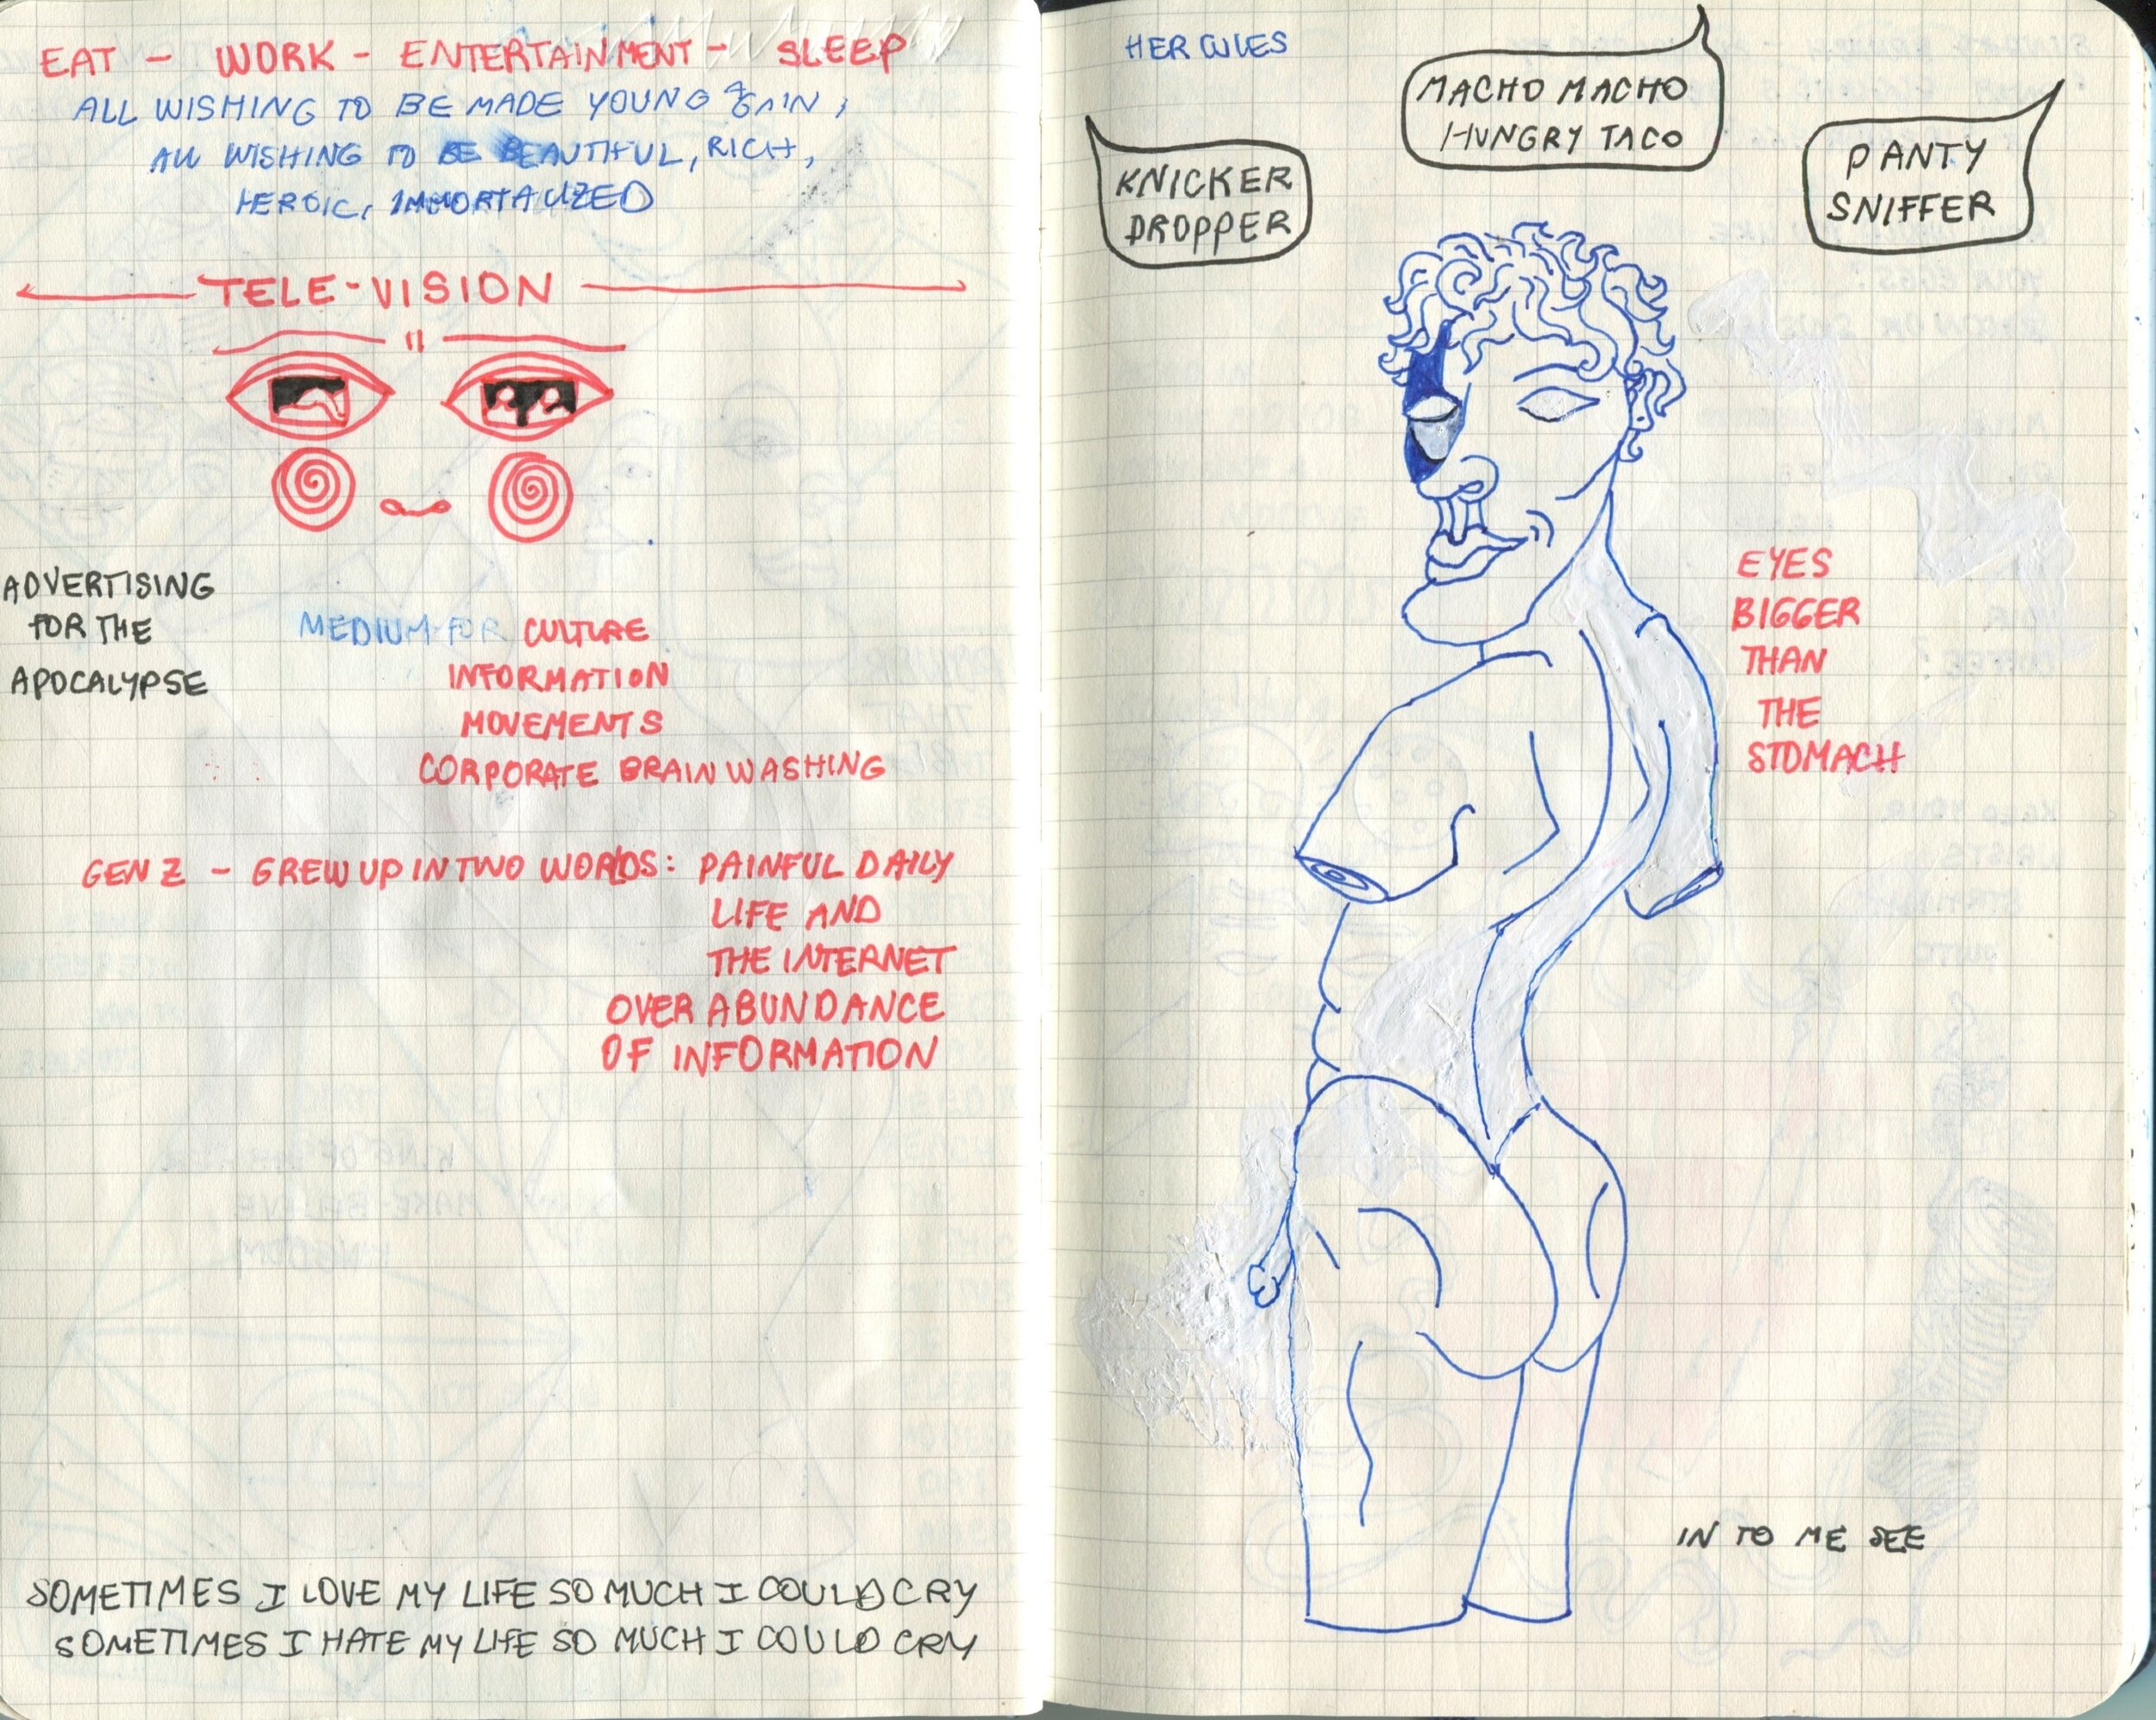 EAT - WORK - ENTERTAINMENT - SLEEP
ALL WISHING TO BE MADE YOUNG AGAIN,
ALL WISHING TO BE BEAUTIFUL, RICH,
HEROIC, IMMORTALIZED
TELE-VISION
ADVERTISING
FOR THE
APOCALYPSE
MEDIUM FOR CULTURE
INFORMATION
MOVEMENTS
CORPORATE BRAIN WASHING
GEN Z - GREW UP IN TWO WORLDS: PAINFUL DAILY
LIFE AND
THE INTERNET
OVER ABUNDANCE
OF INFORMATION
SOMETIMES I LOVE MY LIFE SO MUCH I COULD CRY
SOMETIMES I HATE MY LIFE SO MUCH I COULD CRY
HERCULES
KNICKER
DROPPER
MACHO MACHO
HUNGRY TACO
PANTY
SNIFFER
EYES
BIGGER
THAN
THE
STOMACH
IN TO ME SEE